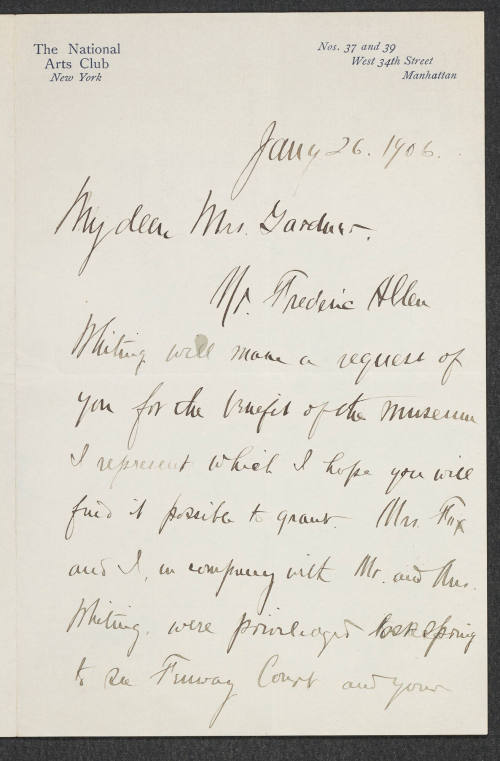 The National
Arts Club
New York
Nos. 37 and 39
West 34th Street
Manhattan
Jany 26. 1906.
My dear Mrs. Gardner.
Mr. Frederic Allen
Whiting will make a request of
you for the benefit of the museum
I represent which I hope you will
find it possible to grant. Mrs. Fox
and I, in company with Mr. and Mrs.
Whiting, were privileged last spring
to see Fenway Court and your